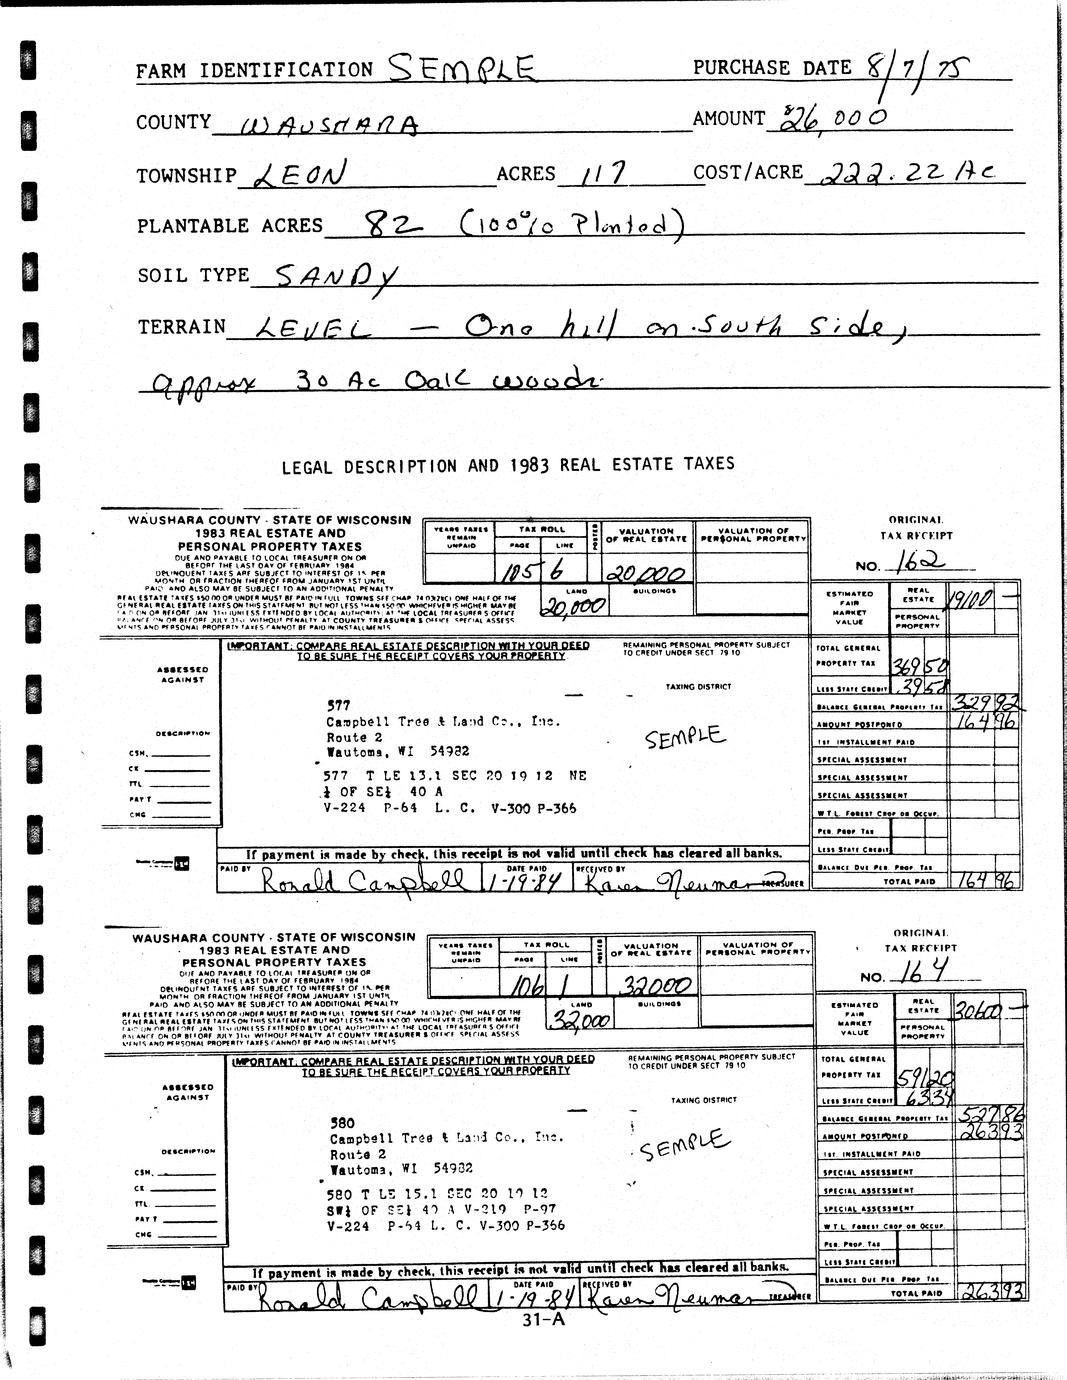 FARM IDENTIFICATION SEMPLE PURCHASE DATE 8/7/75
COUNTY WAUSHARA AMOUNT $26,000
TOWNSHIP LEON ACRES 117 COST/ACRE 222.22 Ac
PLANTABLE ACRES 82 (100% Planted)
SOIL TYPE SANDY
TERRAIN LEVEL — One hill on South Side,
approx 30 Ac Oak woods
LEGAL DESCRIPTION AND 1983 REAL ESTATE TAXES
WAUSHARA COUNTY - STATE OF WISCONSIN
1983 REAL ESTATE AND
PERSONAL PROPERTY TAXES
DUE AND PAYABLE TO LOCAL TREASURER ON OR
BEFORE THE LAST DAY OF FEBRUARY 1984
DELINQUENT TAXES ARE SUBJECT TO INTEREST OF 1% PER
MONTH OR FRACTION THEREOF FROM JANUARY 1ST UNTIL
PAID AND ALSO MAY BE SUBJECT TO AN ADDITIONAL PENALTY
YEARS TAXES REMAIN UNPAID
TAX ROLL
PAGE LINE
105 6
POSTED
VALUATION OF REAL ESTATE
20,000
LAND BUILDINGS
20,000
VALUATION OF PERSONAL PROPERTY
ORIGINAL
TAX RECEIPT
NO. 162
ESTIMATED FAIR MARKET VALUE
REAL ESTATE 19100 —
PERSONAL PROPERTY
IMPORTANT: COMPARE REAL ESTATE DESCRIPTION WITH YOUR DEED
TO BE SURE THE RECEIPT COVERS YOUR PROPERTY.
REMAINING PERSONAL PROPERTY SUBJECT
TO CREDIT UNDER SECT 79 10
TAXING DISTRICT
SEMPLE
ASSESSED
AGAINST
DESCRIPTION
CSH.
CK
TTL
PAY'T
CHG
577
Campbell Tree & Land Co., Inc.
Route 2
Wautoma, WI 54982
577 T LE 13.1 SEC 20 19 12 NE
¼ OF SE¼ 40 A
V-224 P-64 L. C. V-300 P-366
TOTAL GENERAL PROPERTY TAX 369 50
LESS STATE CREDIT 39 58
BALANCE GENERAL PROPERTY TAX 329 92
AMOUNT POSTPONED 164 96
1ST INSTALLMENT PAID
SPECIAL ASSESSMENT
SPECIAL ASSESSMENT
SPECIAL ASSESSMENT
W.T.L. FOREST CROP OR OCCUP.
PER. PROP TAX
LESS STATE CREDIT
BALANCE DUE PER. PROP TAX
TOTAL PAID 164 96
If payment is made by check, this receipt is not valid until check has cleared all banks.
PAID BY Ronald Campbell DATE PAID 1-19-84 RECEIVED BY Karen Neuman TREASURER
WAUSHARA COUNTY - STATE OF WISCONSIN
1983 REAL ESTATE AND
PERSONAL PROPERTY TAXES
DUE AND PAYABLE TO LOCAL TREASURER ON OR
BEFORE THE LAST DAY OF FEBRUARY 1984
DELINQUENT TAXES ARE SUBJECT TO INTEREST OF 1% PER
MONTH OR FRACTION THEREOF FROM JANUARY 1ST UNTIL
PAID AND ALSO MAY BE SUBJECT TO AN ADDITIONAL PENALTY
YEARS TAXES REMAIN UNPAID
TAX ROLL
PAGE LINE
106 1
POSTED
VALUATION OF REAL ESTATE
32000
LAND BUILDINGS
32,000
VALUATION OF PERSONAL PROPERTY
ORIGINAL
TAX RECEIPT
NO. 164
ESTIMATED FAIR MARKET VALUE
REAL ESTATE 30600 —
PERSONAL PROPERTY
IMPORTANT: COMPARE REAL ESTATE DESCRIPTION WITH YOUR DEED
TO BE SURE THE RECEIPT COVERS YOUR PROPERTY
REMAINING PERSONAL PROPERTY SUBJECT
TO CREDIT UNDER SECT 79 10
TAXING DISTRICT
SEMPLE
ASSESSED
AGAINST
DESCRIPTION
CSH.
CK
TTL.
PAY'T
CHG
580
Campbell Tree & Land Co., Inc.
Route 2
Wautoma, WI 54982
580 T LE 15.1 SEC 20 19 12
SW¼ OF SE¼ 40 A V-219 P-97
V-224 P-64 L. C. V-300 P-366
TOTAL GENERAL PROPERTY TAX 591 20
LESS STATE CREDIT 63 34
BALANCE GENERAL PROPERTY TAX 527 86
AMOUNT POSTPONED 263 93
1ST. INSTALLMENT PAID
SPECIAL ASSESSMENT
SPECIAL ASSESSMENT
SPECIAL ASSESSMENT
W.T.L. FOREST CROP OR OCCUP.
PER. PROP. TAX
LESS STATE CREDIT
BALANCE DUE PER PROP TAX
TOTAL PAID 263 93
If payment is made by check, this receipt is not valid until check has cleared all banks.
PAID BY Ronald Campbell DATE PAID 1-19-84 RECEIVED BY Karen Neuman TREASURER
31-A